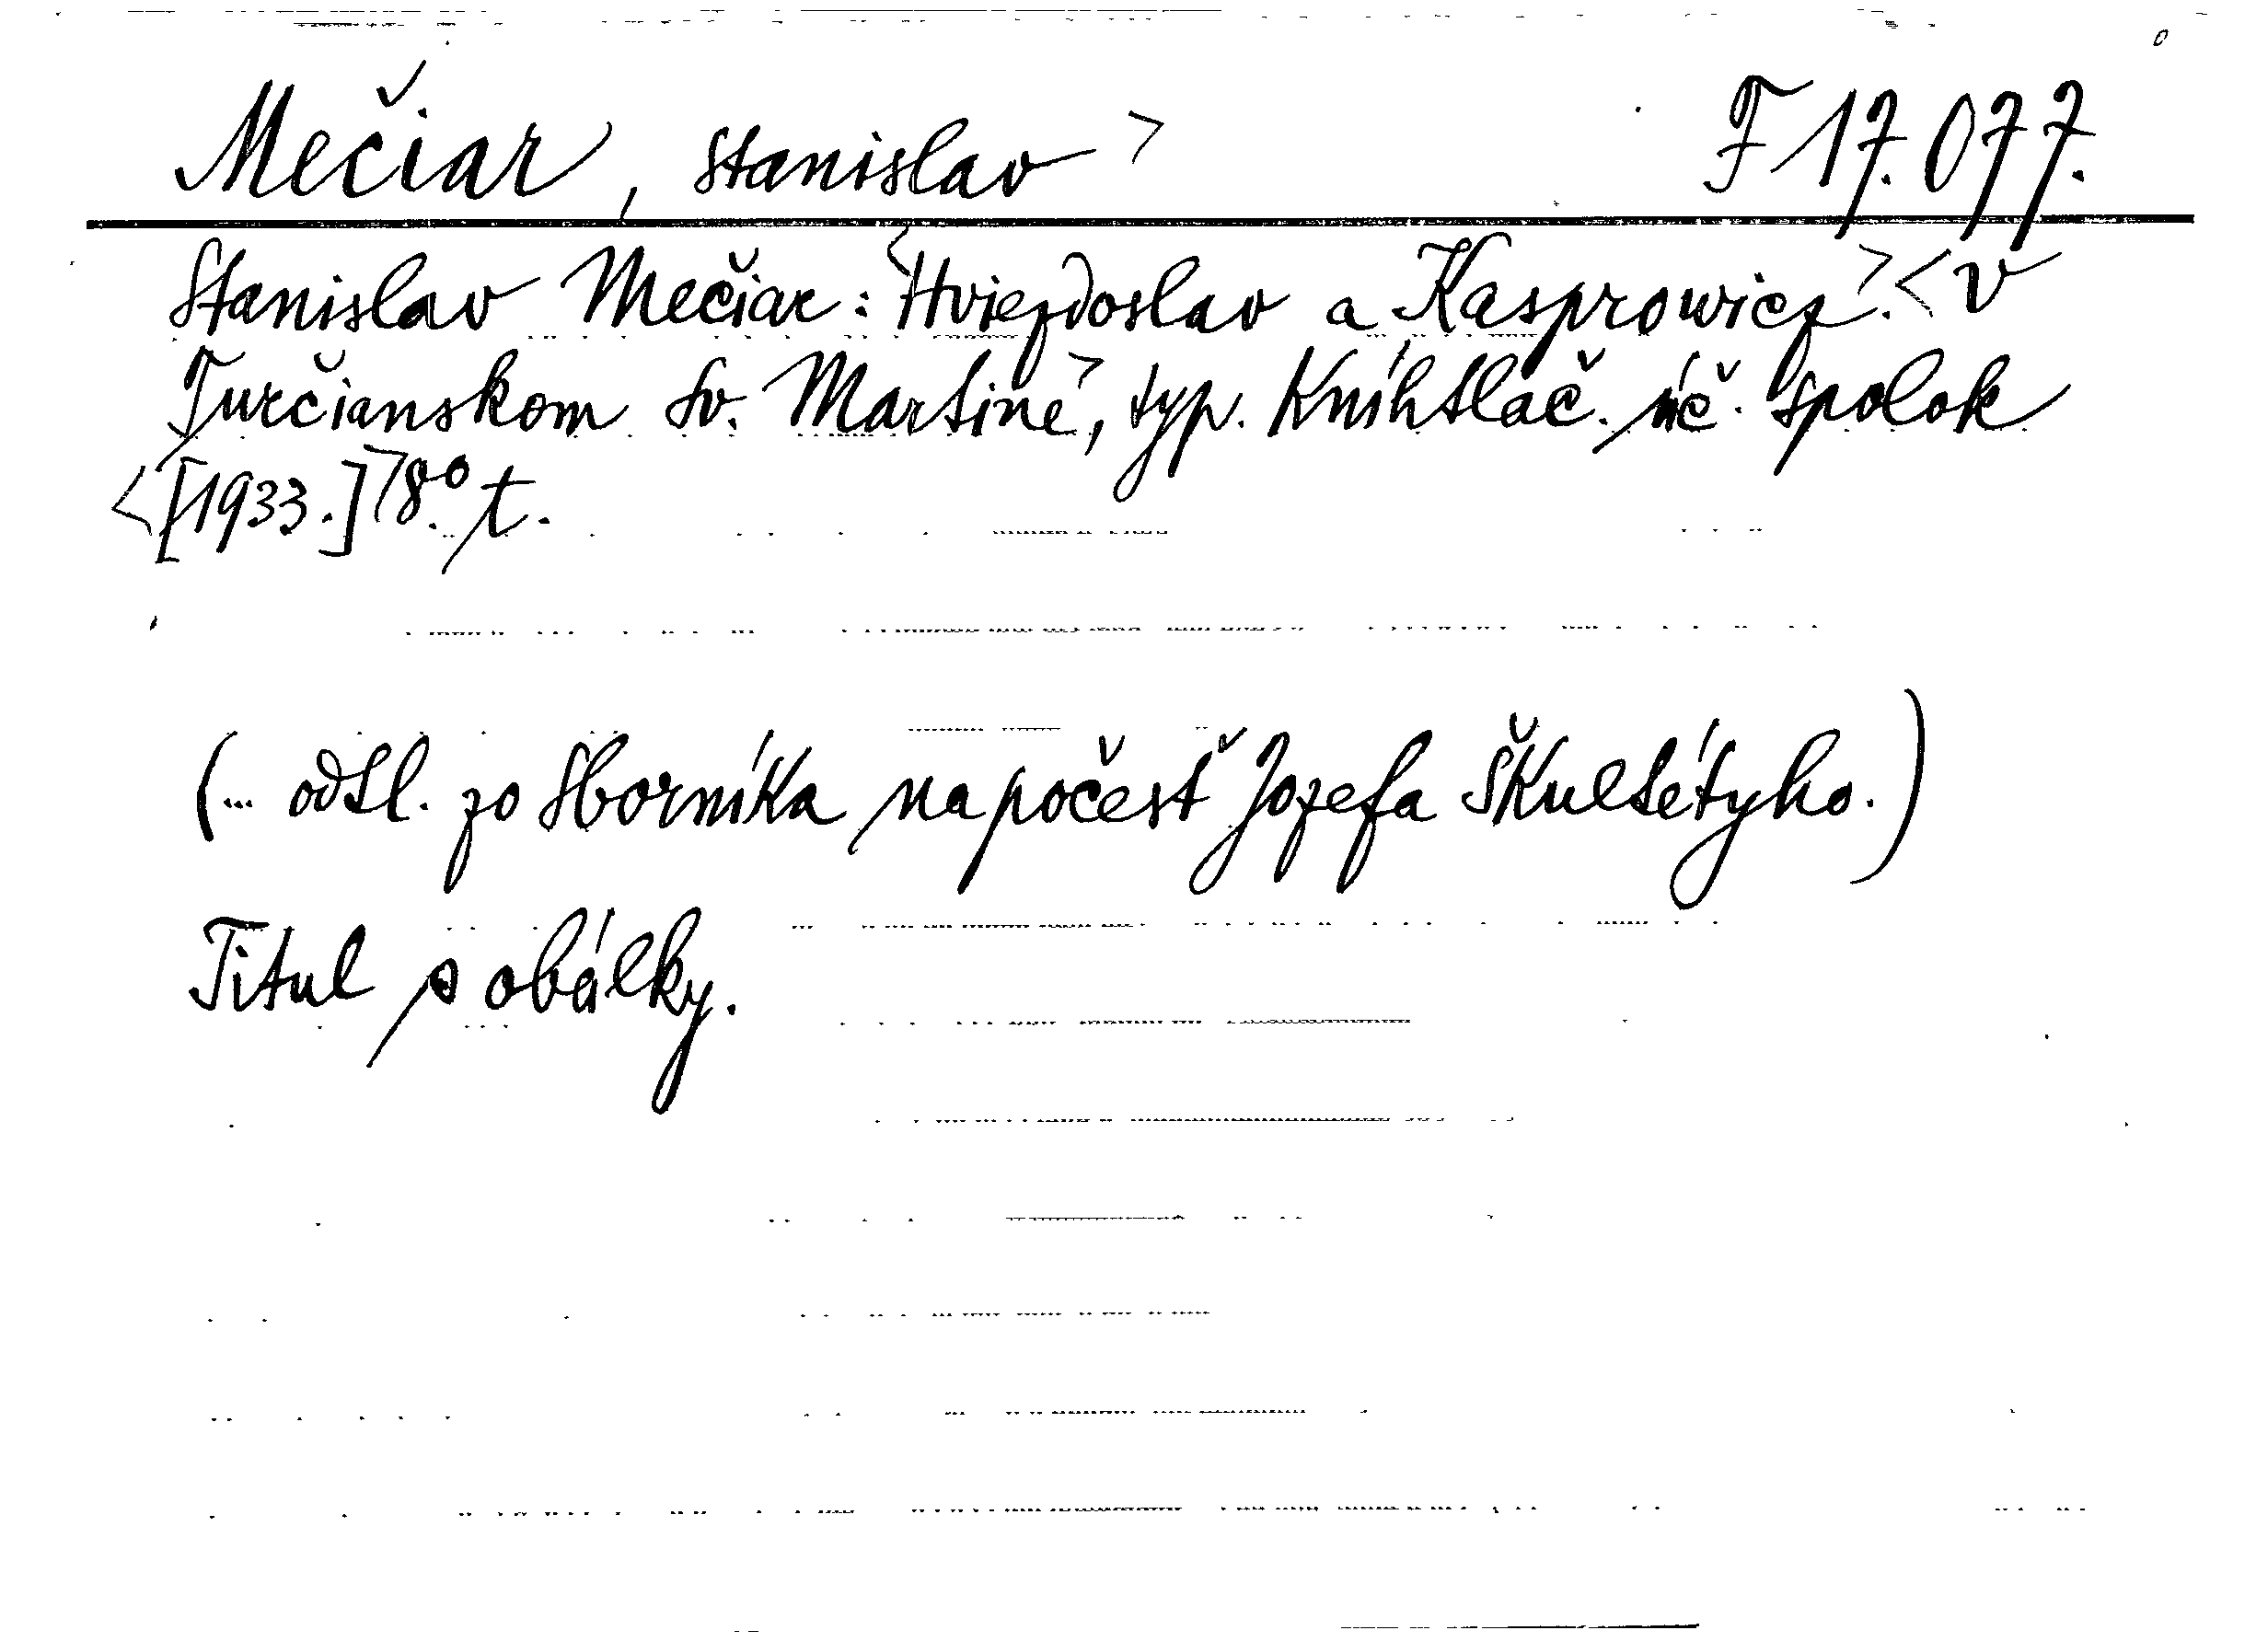 Mečiar, Stanislav > F 17.077.
Stanislav Mečiar: <Hviezdoslav a Kasprowicz>. <V
Turčianskom Sv. Martine>, typ. Kníhtlač. úč. spolok
<[1933.]> 8.° t.
(... odtl. zo Sborníka na počesť Jozefa Škultétyho.)
Titul s obálky.